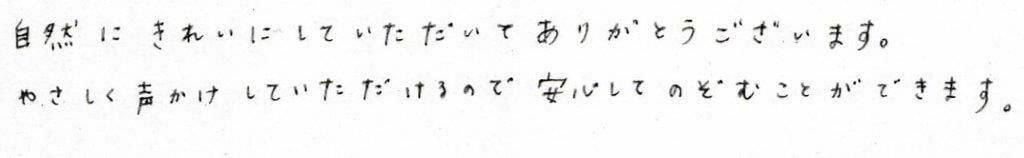 自然にきれいにしていただいてありがとうございます。
やさしく声かけしていただけるので安心してのぞむことができます。